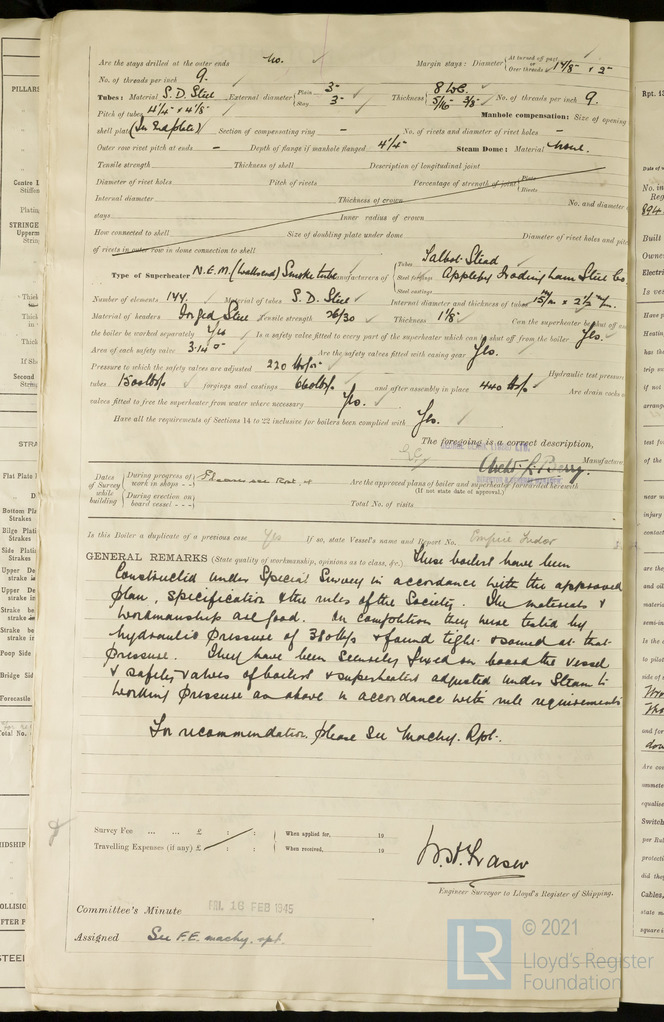 Are the stays drilled at the outer ends No. ✓ Margin stays: Diameter { At turned off part or Over threads 1 7/8" × 2"
No. of threads per inch 9. ✓
Tubes: Material S.D. Steel External diameter { Plain 3" Stay 3" ✓ Thickness { 8 W.G. 5/16" 3/8" ✓ No. of threads per inch 9.
Pitch of tubes 4 1/4" × 4 1/8" ✓ Manhole compensation: Size of opening
shell plate (In End plate) ✓ Section of compensating ring – No. of rivets and diameter of rivet holes –
Outer row rivet pitch at ends – Depth of flange if manhole flanged 4 1/4" Steam Dome: Material None.
Tensile strength Thickness of shell Description of longitudinal joint
Diameter of rivet holes Pitch of rivets Percentage of strength of joint { Plate Rivets
Internal diameter Thickness of crown No. and diameter
stays Inner radius of crown
How connected to shell Size of doubling plate under dome Diameter of rivet holes and pitch
of rivets in outer row in dome connection to shell
Type of Superheater N.E.M. (Wallsend) Smoke tube Manufacturers of { Tubes Talbot Stead Steel forgings Appleby Frodingham Steel Co Steel castings
Number of elements 144. ✓ Material of tubes S.D. Steel ✓ Internal diameter and thickness of tubes
Material of headers Forged Steel Tensile strength 26/30 ✓ Thickness 1 1/8" ✓ Can the superheater be shut off and
the boiler be worked separately Yes ✓ Is a safety valve fitted to every part of the superheater which can be shut off from the boiler Yes. ✓
Area of each safety valve 3.14 ✓ Are the safety valves fitted with easing gear Yes. ✓
Pressure to which the safety valves are adjusted 220 ✓ Hydraulic test pressure
tubes 1500 ✓ forgings and castings 660 ✓ and after assembly in place 440 ✓ Are drain cocks or
valves fitted to free the superheater from water where necessary Yes. ✓
Have all the requirements of Sections 14 to 22 inclusive for boilers been complied with Yes. ✓
The foregoing is a correct description,
Manufacturer
Dates of Survey while building { During progress of work in shops - - Are the approved plans of boiler and superheater forwarded herewith
(If not state date of approval.)
During erection on board vessel - - - Total No. of visits
Is this Boiler a duplicate of a previous case Yes If so, state Vessel's name and Report No. Empire Tudor
GENERAL REMARKS (State quality of workmanship, opinions as to class, &c.) These boilers have been
Constructed under Special Survey in accordance with the approved
plan, specification & the rules of the Society. The materials &
workmanship are good. On completion they were tested by
hydraulic pressure of 380 & found tight & sound at that
pressure. They have been securely fixed on board the vessel
& safety valves of boilers & superheaters adjusted under Steam to
working pressure as above in accordance with rule requirements
For recommendation please see Machy. Rpt.
Survey Fee ... ... £ : : } When applied for, 19
Travelling Expenses (if any) £ : : } When received, 19
W.H. Fraser
Engineer Surveyor to Lloyd's Register of Shipping.
Committee's Minute FRI. 16 FEB 1945
Assigned See F.E. machy. rpt.
LR © 2021
Lloyd's Register
Foundation